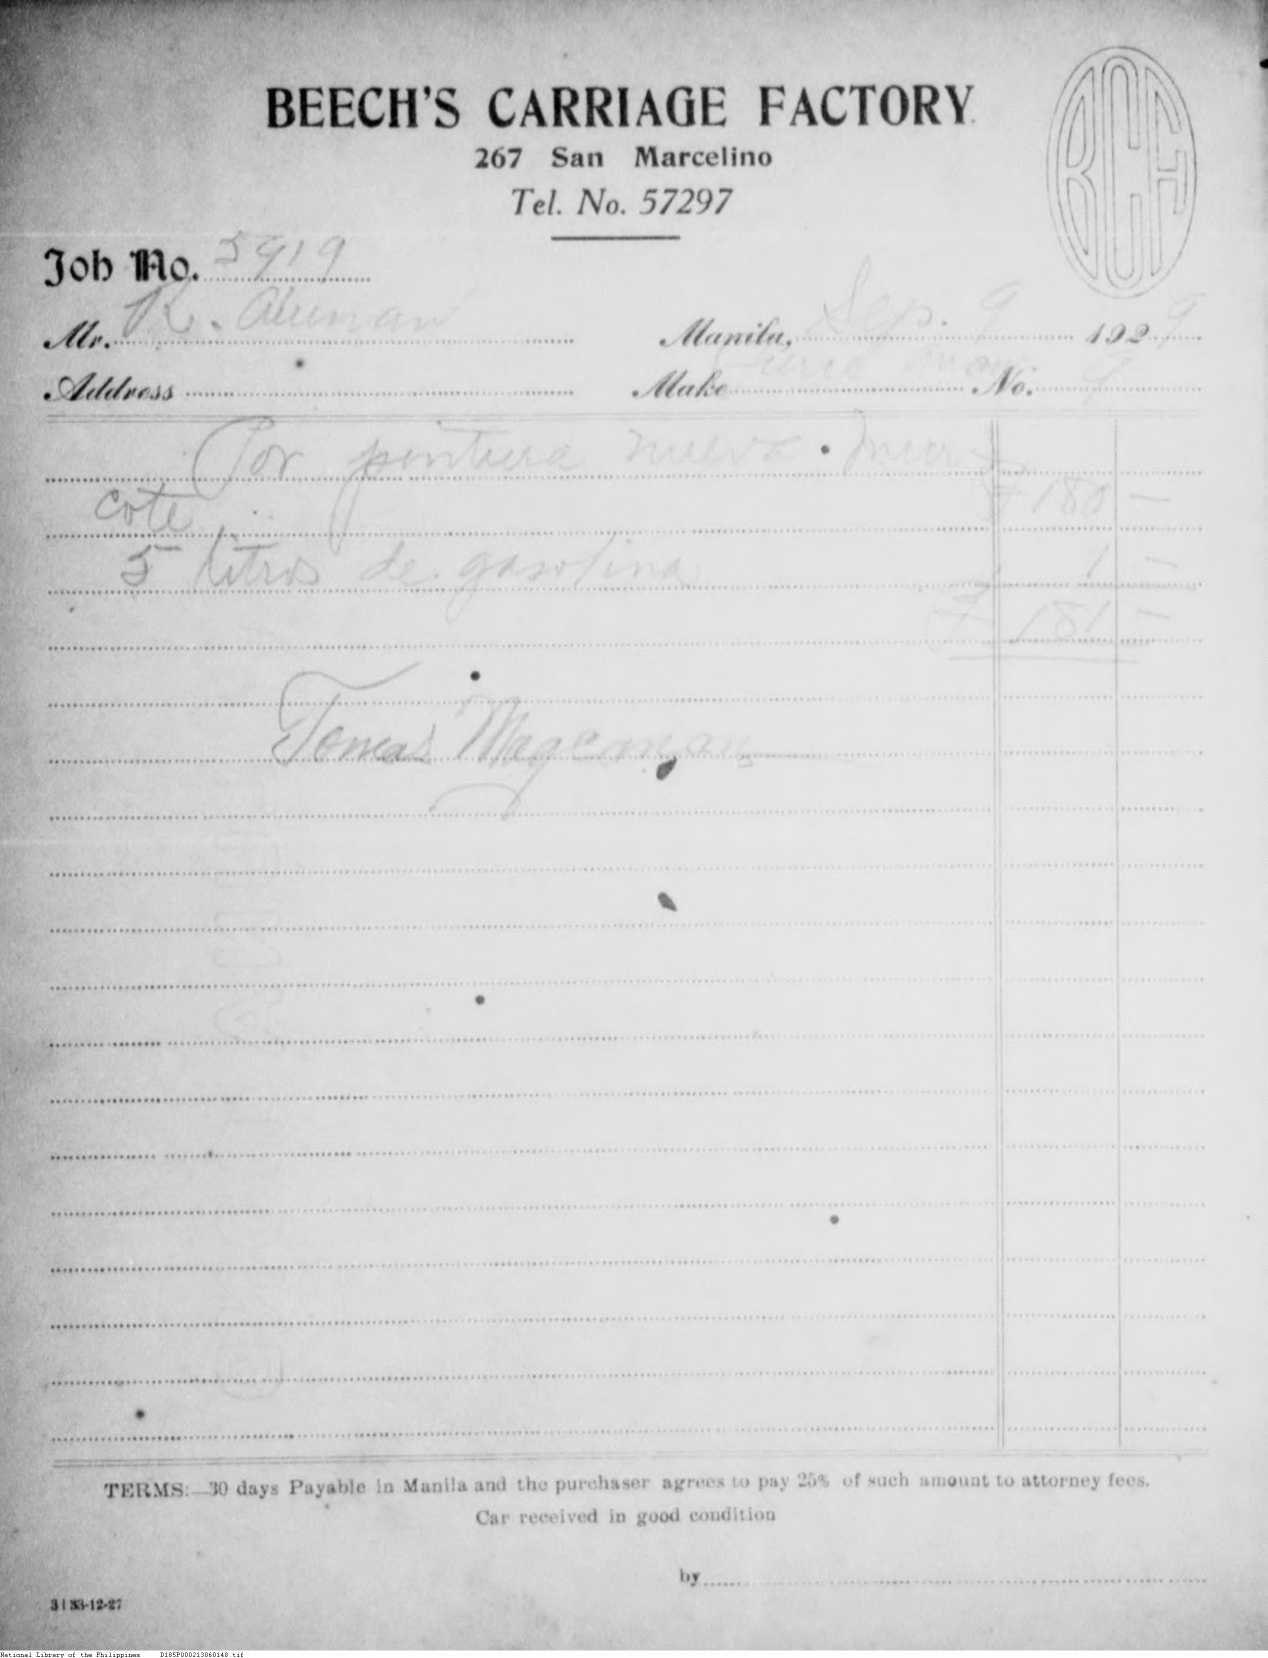 BEECH'S CARRIAGE FACTORY
BCH
267 San Marcelino
Tel. No. 57297
Job No. 5919
Mr. R. Aleman Manila, Sep. 9 1929
Address Make No. 9
Por pintura nueva
cote ₱ 180 —
5 litros de gasolina 1 —
₱ 181 —
Tomas
TERMS:—30 days Payable in Manila and the purchaser agrees to pay 25% of such amount to attorney fees.
Car received in good condition
by
3133-12-27
National Library of the Philippines D185P000213060140.tif